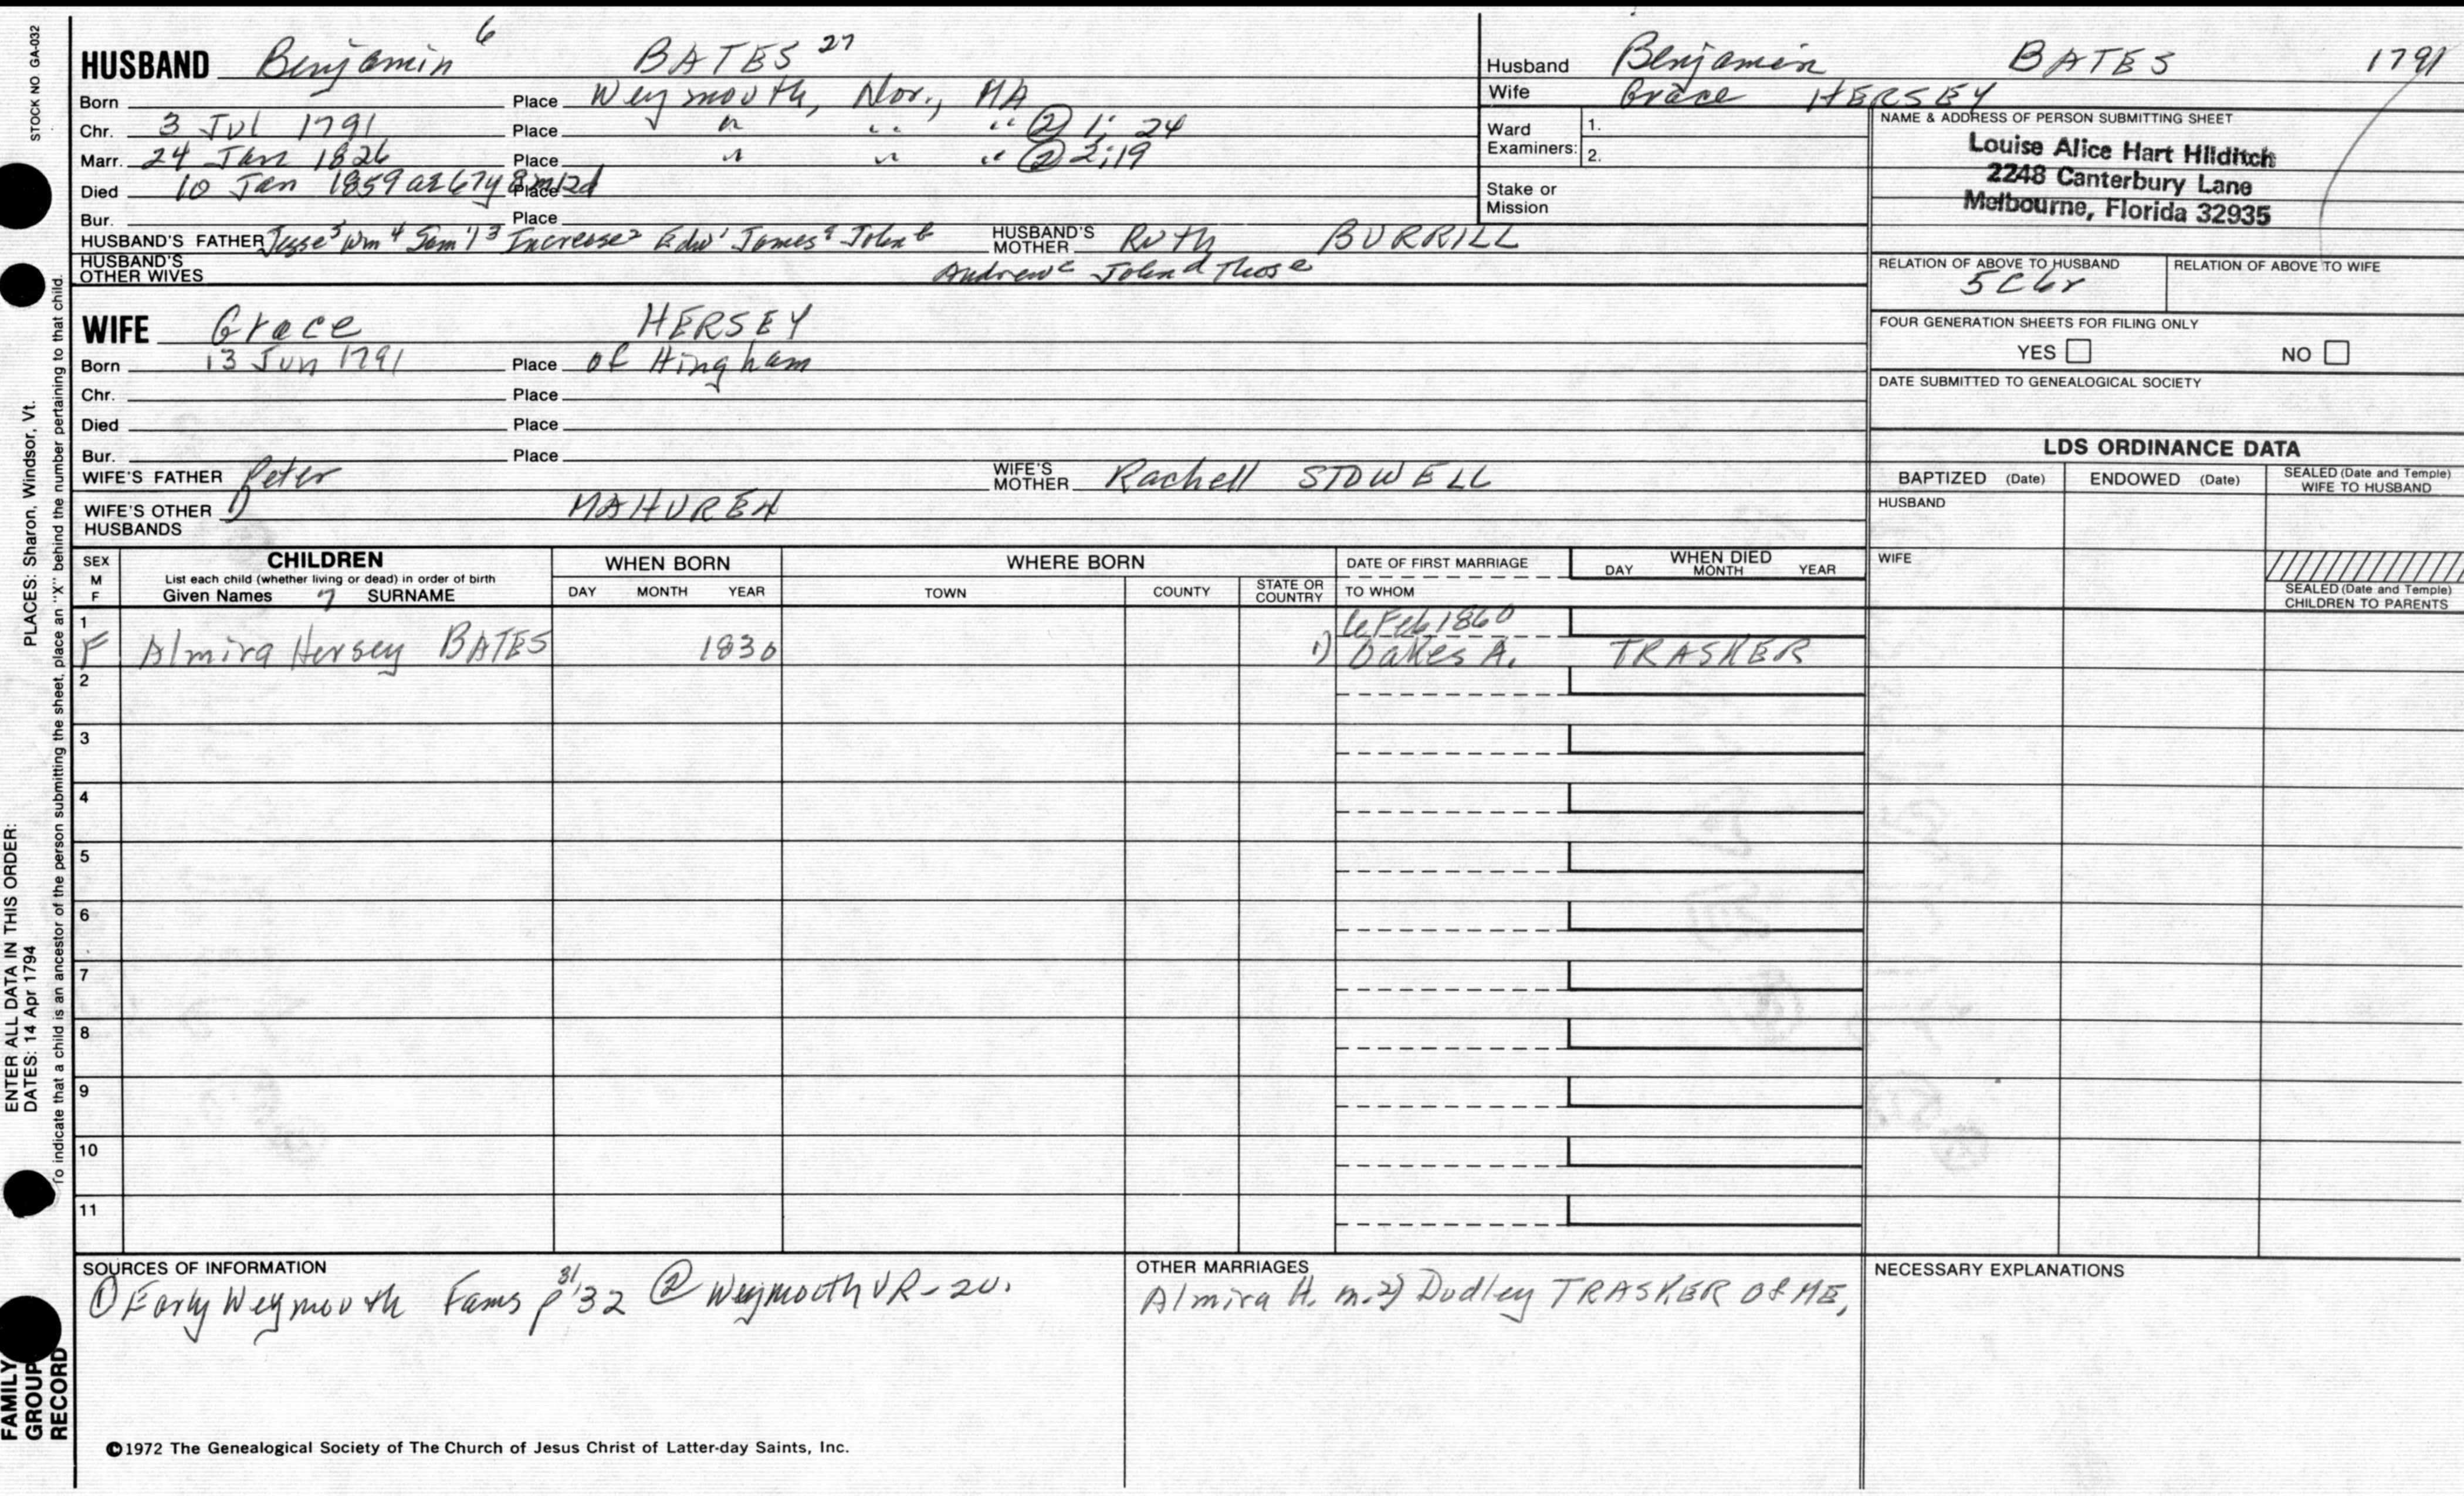 STOCK NO GA-032
HUSBAND Benjamin 6 BATES 27
Born Place Weymouth, Nor., MA
Chr. 3 Jul 1791 Place " " " ② 1; 24
Marr. 24 Jan 1826 Place " " " ② 2; 19
Died 10 Jan 1859 ae 67y 8m12d Place
Bur. Place
HUSBAND'S FATHER Jesse5 Wm4 Sam'l3 Increase2 Edw1 Jamesa Johnb HUSBAND'S MOTHER Ruth BURRILL
HUSBAND'S OTHER WIVES Andrewc Johnd Those
Husband Benjamin BATES 1791
Wife Grace HERSEY
Ward Examiners: 1.
2.
Stake or Mission
NAME & ADDRESS OF PERSON SUBMITTING SHEET
Louise Alice Hart Hilditch
2248 Canterbury Lane
Melbourne, Florida 32935
RELATION OF ABOVE TO HUSBAND RELATION OF ABOVE TO WIFE
5C6r
FOUR GENERATION SHEETS FOR FILING ONLY
YES NO
DATE SUBMITTED TO GENEALOGICAL SOCIETY
WIFE Grace HERSEY
Born 13 Jun 1791 Place of Hingham
Chr. Place
Died Place
Bur. Place
WIFE'S FATHER Peter WIFE'S MOTHER Rachell STOWELL
WIFE'S OTHER HUSBANDS 1) MAHUREN
LDS ORDINANCE DATA
BAPTIZED (Date) ENDOWED (Date) SEALED (Date and Temple) WIFE TO HUSBAND
HUSBAND
WIFE
SEALED (Date and Temple) CHILDREN TO PARENTS
SEX M F
CHILDREN
List each child (whether living or dead) in order of birth
Given Names 7 SURNAME
WHEN BORN
DAY MONTH YEAR
WHERE BORN
TOWN COUNTY STATE OR COUNTRY
DATE OF FIRST MARRIAGE
TO WHOM
WHEN DIED
DAY MONTH YEAR
1
6 Feb 1860
F Almira Hersey BATES 1830 1) Oakes A. TRASKER
2
3
4
5
6
7
8
9
10
11
SOURCES OF INFORMATION
① Early Weymouth Fams p 31/32 ② Weymouth VR-2v.
OTHER MARRIAGES
Almira H. m. 2) Dudley TRASKER of ME,
NECESSARY EXPLANATIONS
©1972 The Genealogical Society of The Church of Jesus Christ of Latter-day Saints, Inc.
FAMILY GROUP RECORD
ENTER ALL DATA IN THIS ORDER:
DATES: 14 Apr 1794
PLACES: Sharon, Windsor, Vt.
To indicate that a child is an ancestor of the person submitting the sheet, place an "X" behind the number pertaining to that child.